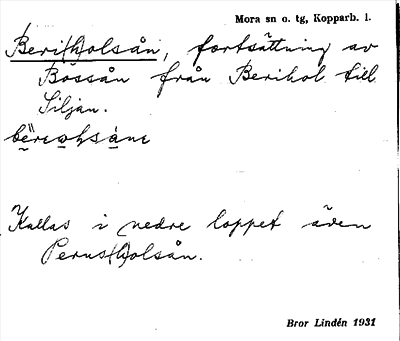 Mora sn o. tg, Kopparb. l.
Beri(h)olsån, fortsättning av
Bössån från Berihol till
Siljan.
Kallas i nedre loppet även
Perus(h)olsån.
Bror Lindén 1931